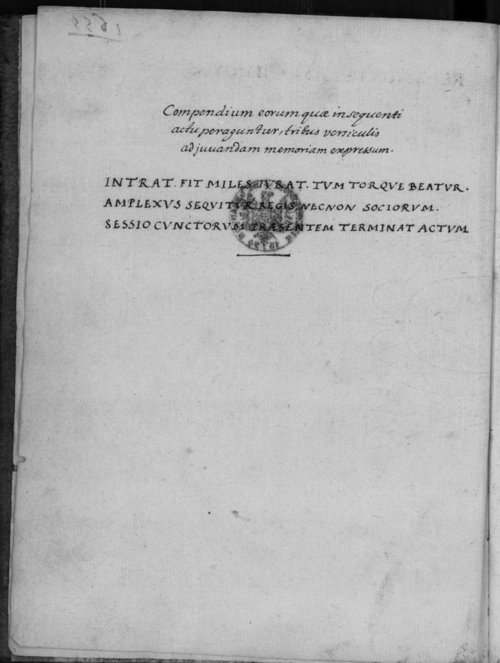 Compendium eorum quæ in sequenti
actu peraguntur, tribus versiculis
ad juvandam memoriam expressum.
INTRAT. FIT MILES. IVRAT. TVM TORQVE BEATVR.
AMPLEXVS SEQVITVR REGIS, NECNON SOCIORVM.
SESSIO CVNCTORVM PRÆSENTEM TERMINAT ACTVM